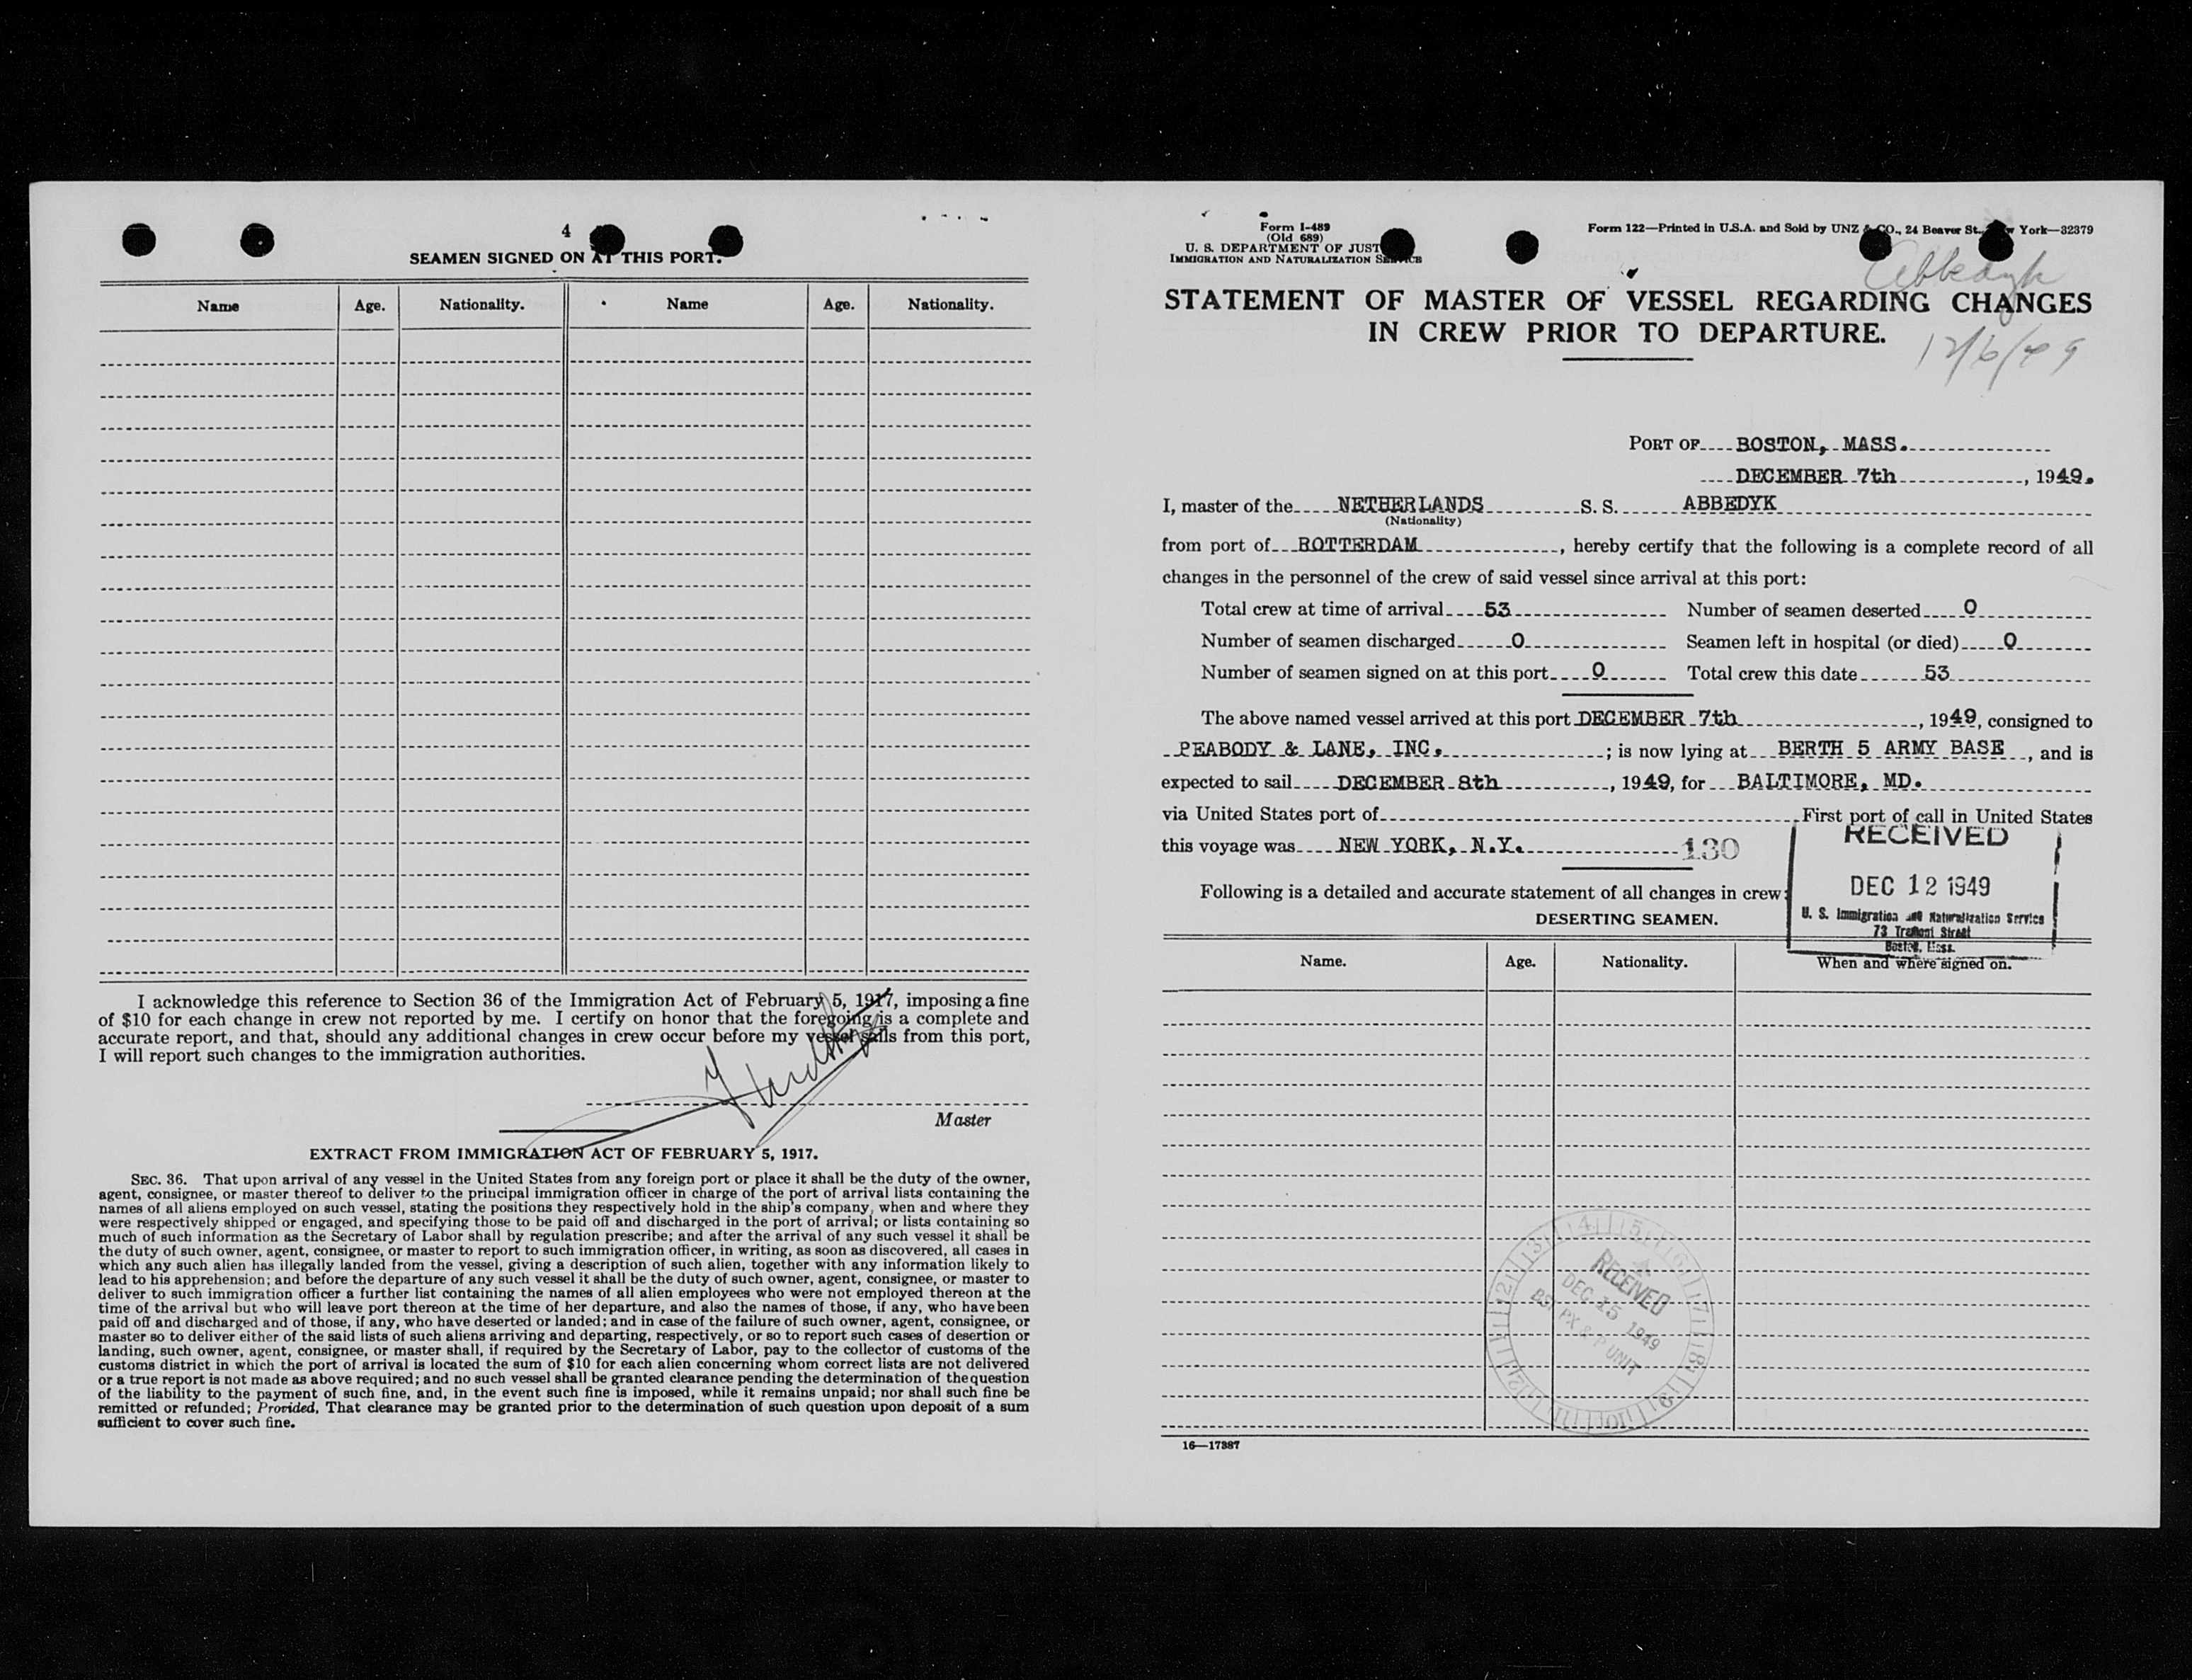 4
SEAMEN SIGNED ON AT THIS PORT.
Name Age. Nationality. Name Age. Nationality.
I acknowledge this reference to Section 36 of the Immigration Act of February 5, 1917, imposing a fine
of $10 for each change in crew not reported by me. I certify on honor that the foregoing is a complete and
accurate report, and that, should any additional changes in crew occur before my vessel sails from this port,
I will report such changes to the immigration authorities.
Master
EXTRACT FROM IMMIGRATION ACT OF FEBRUARY 5, 1917.
SEC. 36. That upon arrival of any vessel in the United States from any foreign port or place it shall be the duty of the owner,
agent, consignee, or master thereof to deliver to the principal immigration officer in charge of the port of arrival lists containing the
names of all aliens employed on such vessel, stating the positions they respectively hold in the ship's company, when and where they
were respectively shipped or engaged, and specifying those to be paid off and discharged in the port of arrival; or lists containing so
much of such information as the Secretary of Labor shall by regulation prescribe; and after the arrival of any such vessel it shall be
the duty of such owner, agent, consignee, or master to report to such immigration officer, in writing, as soon as discovered, all cases in
which any such alien has illegally landed from the vessel, giving a description of such alien, together with any information likely to
lead to his apprehension; and before the departure of any such vessel it shall be the duty of such owner, agent, consignee, or master to
deliver to such immigration officer a further list containing the names of all alien employees who were not employed thereon at the
time of the arrival but who will leave port thereon at the time of her departure, and also the names of those, if any, who have been
paid off and discharged and of those, if any, who have deserted or landed; and in case of the failure of such owner, agent, consignee, or
master so to deliver either of the said lists of such aliens arriving and departing, respectively, or so to report such cases of desertion or
landing, such owner, agent, consignee, or master shall, if required by the Secretary of Labor, pay to the collector of customs of the
customs district in which the port of arrival is located the sum of $10 for each alien concerning whom correct lists are not delivered
or a true report is not made as above required; and no such vessel shall be granted clearance pending the determination of the question
of the liability to the payment of such fine, and, in the event such fine is imposed, while it remains unpaid; nor shall such fine be
remitted or refunded; Provided, That clearance may be granted prior to the determination of such question upon deposit of a sum
sufficient to cover such fine.
Form I-489
(Old 689)
U. S. DEPARTMENT OF JUST
IMMIGRATION AND NATURALIZATION SERVICE
Form 122—Printed in U.S.A. and Sold by UNZ & CO., 24 Beaver St., York—32379
Abbedyk
STATEMENT OF MASTER OF VESSEL REGARDING CHANGES
IN CREW PRIOR TO DEPARTURE.
12/6/49
PORT OF BOSTON, MASS.
DECEMBER 7th, 1949.
I, master of the NETHERLANDS S. S. ABBEDYK
(Nationality)
from port of ROTTERDAM, hereby certify that the following is a complete record of all
changes in the personnel of the crew of said vessel since arrival at this port:
Total crew at time of arrival 53 Number of seamen deserted 0
Number of seamen discharged 0 Seamen left in hospital (or died) 0
Number of seamen signed on at this port 0 Total crew this date 53
The above named vessel arrived at this port DECEMBER 7th, 1949, consigned to
PEABODY & LANE, INC.; is now lying at BERTH 5 ARMY BASE, and is
expected to sail DECEMBER 8th, 1949, for BALTIMORE, MD.
via United States port of First port of call in United States
this voyage was NEW YORK, N.Y. 130
RECEIVED
DEC 12 1949
U. S. Immigration and Naturalization Service
73 Tremont Street
Boston, Mass.
Following is a detailed and accurate statement of all changes in crew:
DESERTING SEAMEN.
Name. Age. Nationality. When and where signed on.
RECEIVED
DEC 15 1949
PX & P UNIT
16—17387